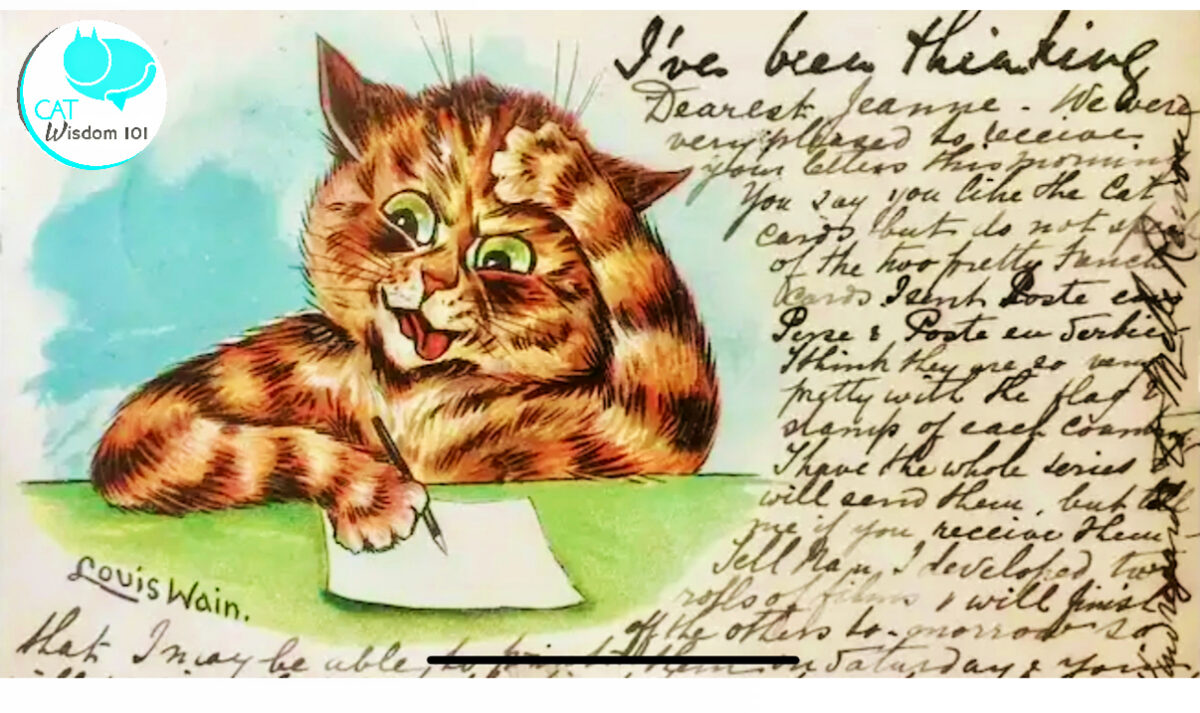 CAT
Wisdom 101
I've been thinking
Dearest Jeanne. We were
very pleased to receive
your letters this morning
You say you like the Cat
cards but do not speak
of the two pretty French
cards I sent Poste en
Perse & Poste en Serbie
I think they are so very
pretty with the flag &
stamps of each country
I have the whole series
will send them, but tell
me if you receive them
Tell Nan, I developed two
rolls of films & will finish
off the others to-morrow so
that I may be able to them on Saturday &
Louis Wain.